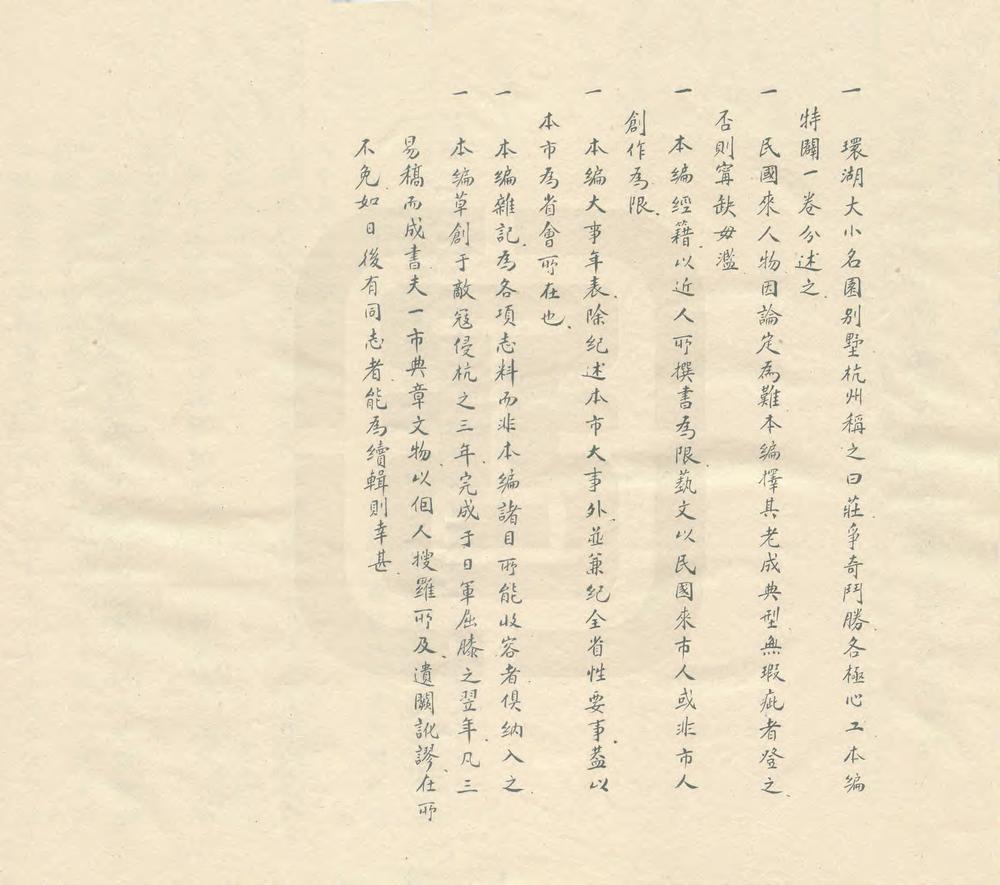 一　環湖大小名園別墅杭州稱之曰莊爭奇鬥勝各極心工本編
特闢一卷分述之
一　民國來人物因論定為難本編擇其老成典型無瑕疵者登之
否則寗缺毋濫
一　本編經籍以近人所撰書為限藝文以民國來市人或非市人
創作為限
一　本編大事年表除紀述本市大事外並兼紀全省性要事蓋以
本市為省會所在也
一　本編雜記為各項志料而非本編諸目所能收容者俱納入之
一　本編草創于敵寇侵杭之三年完成于日軍屈膝之翌年凡三
易稿而成書夫一市典章文物以個人搜羅所及遺闕訛謬在所
不免如日後有同志者能為續輯則幸甚